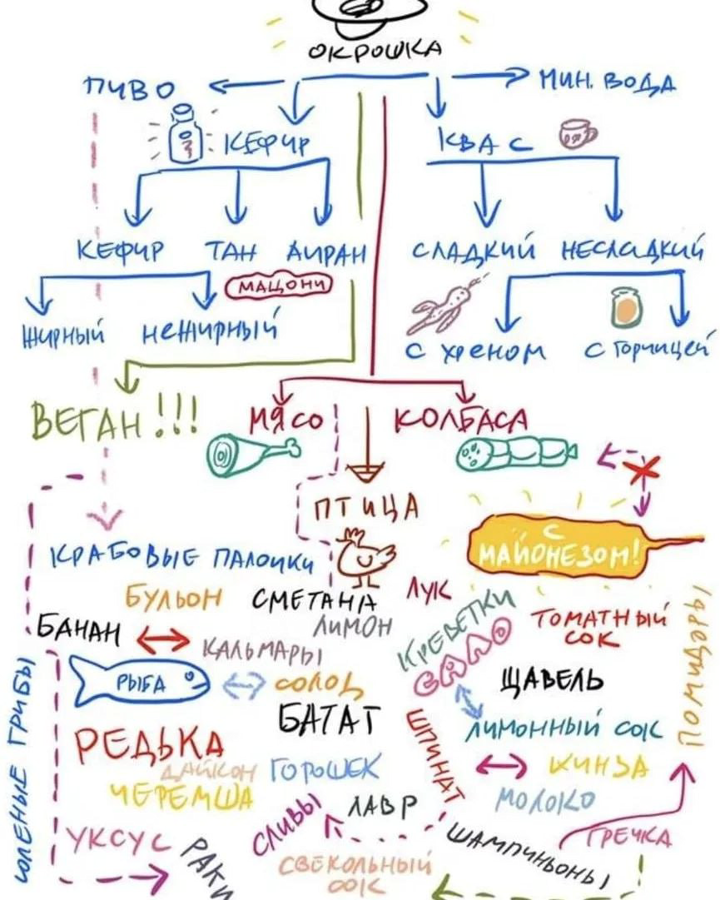 ОКРОШКА
ПИВО
МИН. ВОДА
КЕФИР
КВАС
КЕФИР
ТАН
АЙРАН
СЛАДКИЙ
НЕСЛАДКИЙ
МАЦОНИ
ЖИРНЫЙ
НЕЖИРНЫЙ
С ХРЕНОМ
С ГОРЧИЦЕЙ
ВЕГАН!!!
МЯСО
КОЛБАСА
ПТИЦА
С
МАЙОНЕЗОМ!
КРАБОВЫЕ ПАЛОЧКИ
БУЛЬОН
СМЕТАНА
ЛУК
КРЕВЕТКИ
ТОМАТНЫЙ
СОК
ПОМИДОРЫ
БАНАН
ЛИМОН
КАЛЬМАРЫ
САЛО
ЩАВЕЛЬ
РЫБА
СОЛОД
БАТАТ
ЛИМОННЫЙ СОК
СОЛЕНЫЕ ГРИБЫ
РЕДЬКА
ДАЙКОН
ГОРОШЕК
ШПИНАТ
КИНЗА
ЧЕРЕМША
ЛАВР
МОЛОКО
УКСУС
РАКИ
СЛИВЫ
СВЕКОЛЬНЫЙ
СОК
ШАМПИНЬОНЫ
ГРЕЧКА